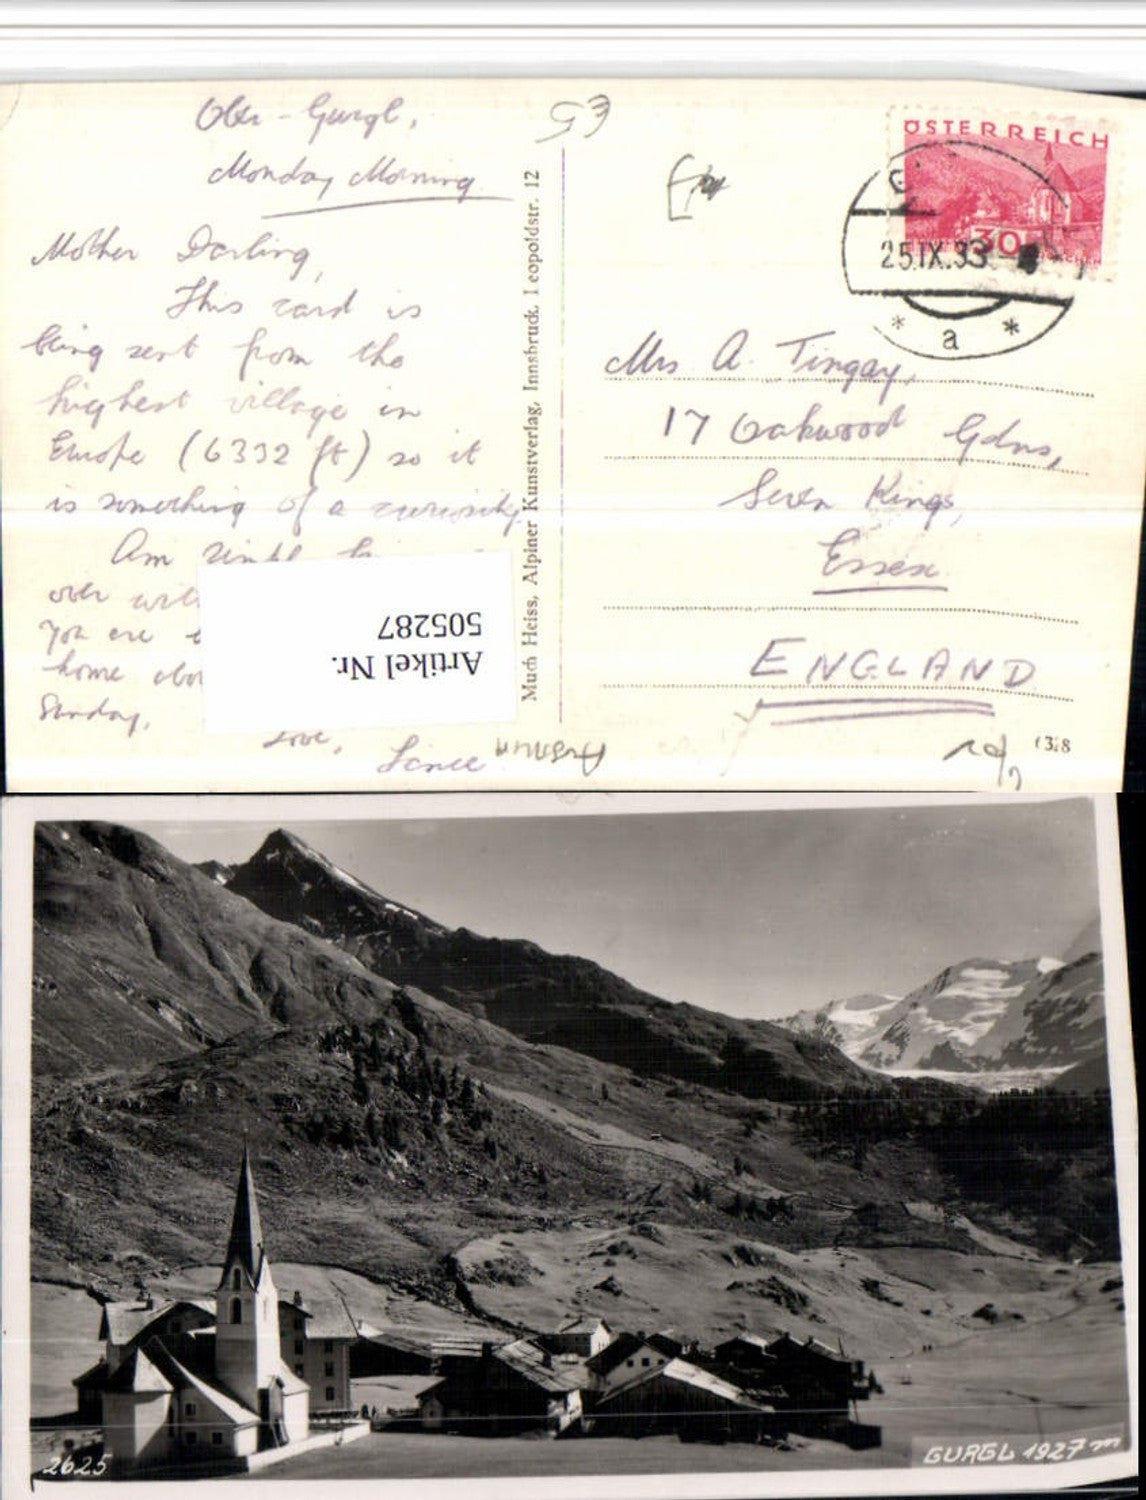 Ober-Gurgl,
Monday Morning
Mother Darling,
This card is
being sent from the
highest village in
Europe (6332 ft) so it
is something of a curiosity.
Am
over
You are
home
Sunday.
Love,
Lance
Much Heiss, Alpiner Kunstverlag, Innsbruck, Leopoldstr. 12
Artikel Nr.
505287
ÖSTERREICH
30
25.IX.33
* a *
Mrs A. Tingay,
17 Oakwood Gdns,
Seven Kings,
Essex.
ENGLAND
2625
GURGL 1927m